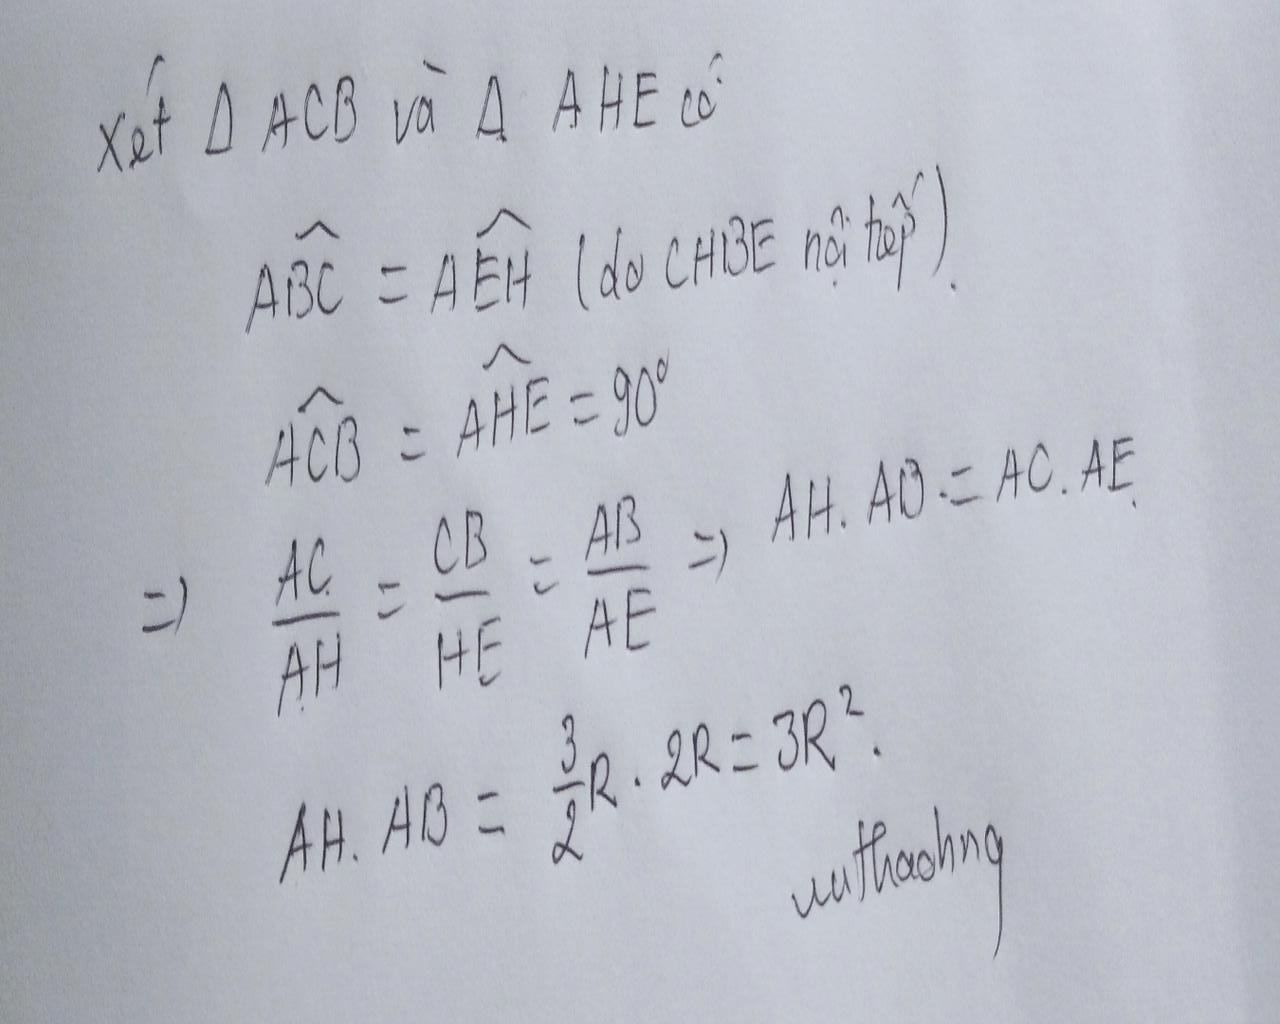 Xét Δ ACB và Δ AHE có
ABC^ = AEH^ (do CHBE nội tiếp).
ACB^ = AHE^ = 90°
=> AC/AH = CB/HE = AB/AE => AH. AB = AC. AE
AH. AB = 3/2 R . 2R = 3R².